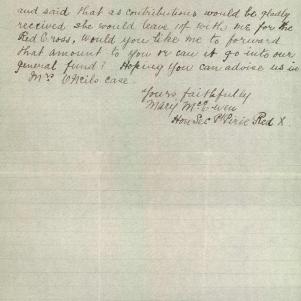 and said that as contributions would be gladly
received she would leave it with me for the
Red Cross, would you like me to forward
that amount to you or can it go into our
general fund? Hoping you can advise us in
Mrs O'Neils case.
Yours faithfully
Mary McEwen
Hon Sec Pt Pirie Red X